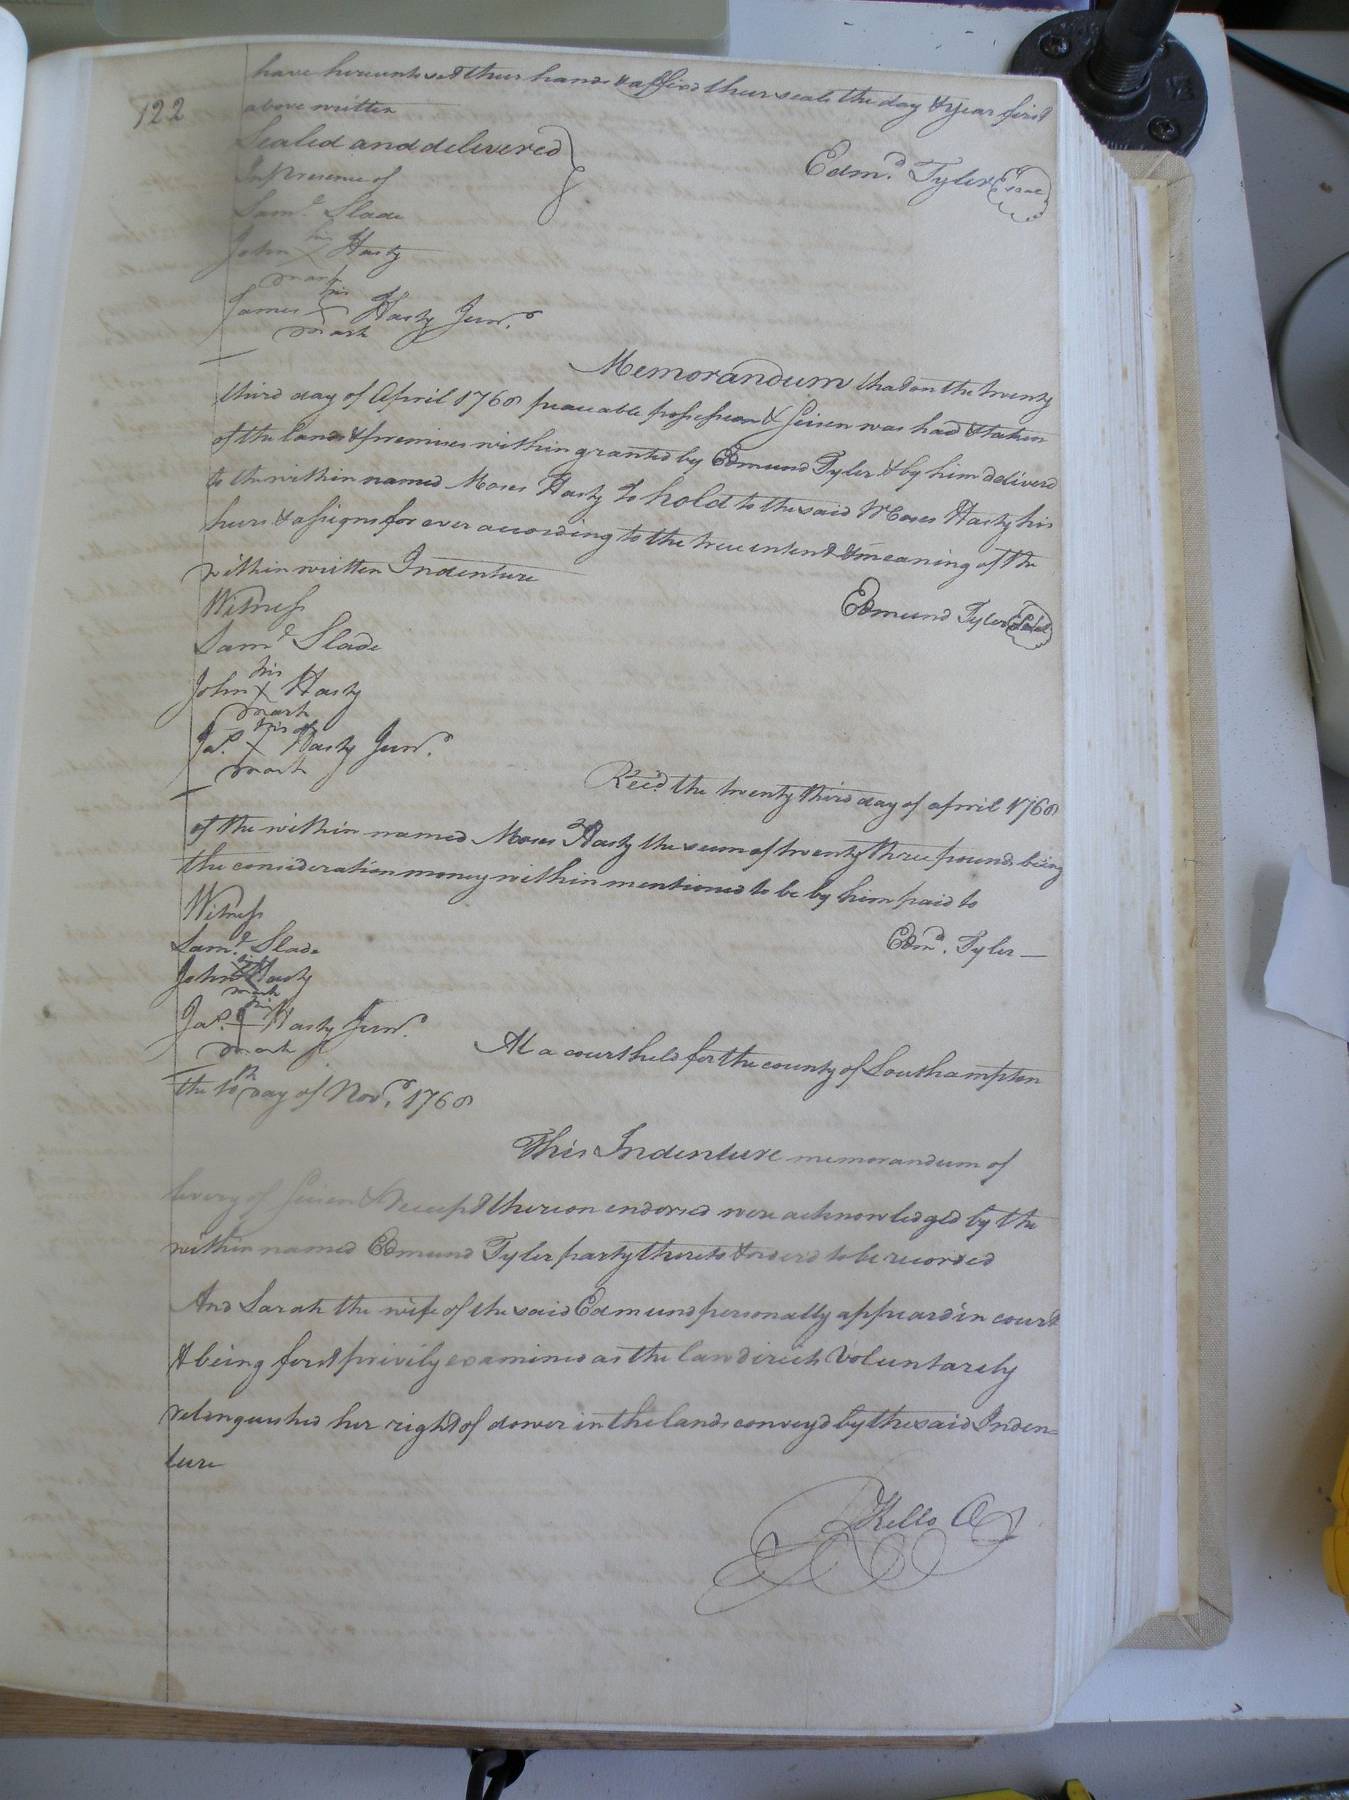 122
have hereunto set their hands & affixd their seals the day & year first
above written
Sealed and delivered
In presence of
Edmd. Tyler Seal
Samˡ Slade
his
John X Hasty
mark
his
James X Hasty Junr.
mark
Memorandum that on the twenty
third day of April 1768 peaceable possession & Seisen was had & taken
of the lands & premises within granted by Edmund Tyler & by him deliverd
to the within named Moses Hasty To hold to the said Moses Hasty his
heirs & assigns for ever according to the true intent & meaning of the
within written Indenture
Witness
Edmund Tyler Seal
Samˡ Slade
his
John X Hasty
mark
his
Jas. X Hasty Junr.
mark
Rec'd the twenty third day of april 1768
of the within named Moses Hasty the sum of twenty three pounds being
the consideration money within mentioned to be by him paid to
Witness
Edmd. Tyler
Samˡ Slade
his
John X Hasty
mark
his
Jas. Hasty Junr.
mark
At a court held for the county of Southampton
the 10th day of Novr. 1768
This Indenture memorandum of
livery of Seisen & Receipt thereon endorsed were acknowledged by the
within named Edmund Tyler party thereto & orderd to be recorded
And Sarah the wife of the said Edmund personally appeard in court
& being first privily examined as the law directs Voluntarely
relinquished her right of dower in the lands conveyd by the said Inden=
ture
R Kello C